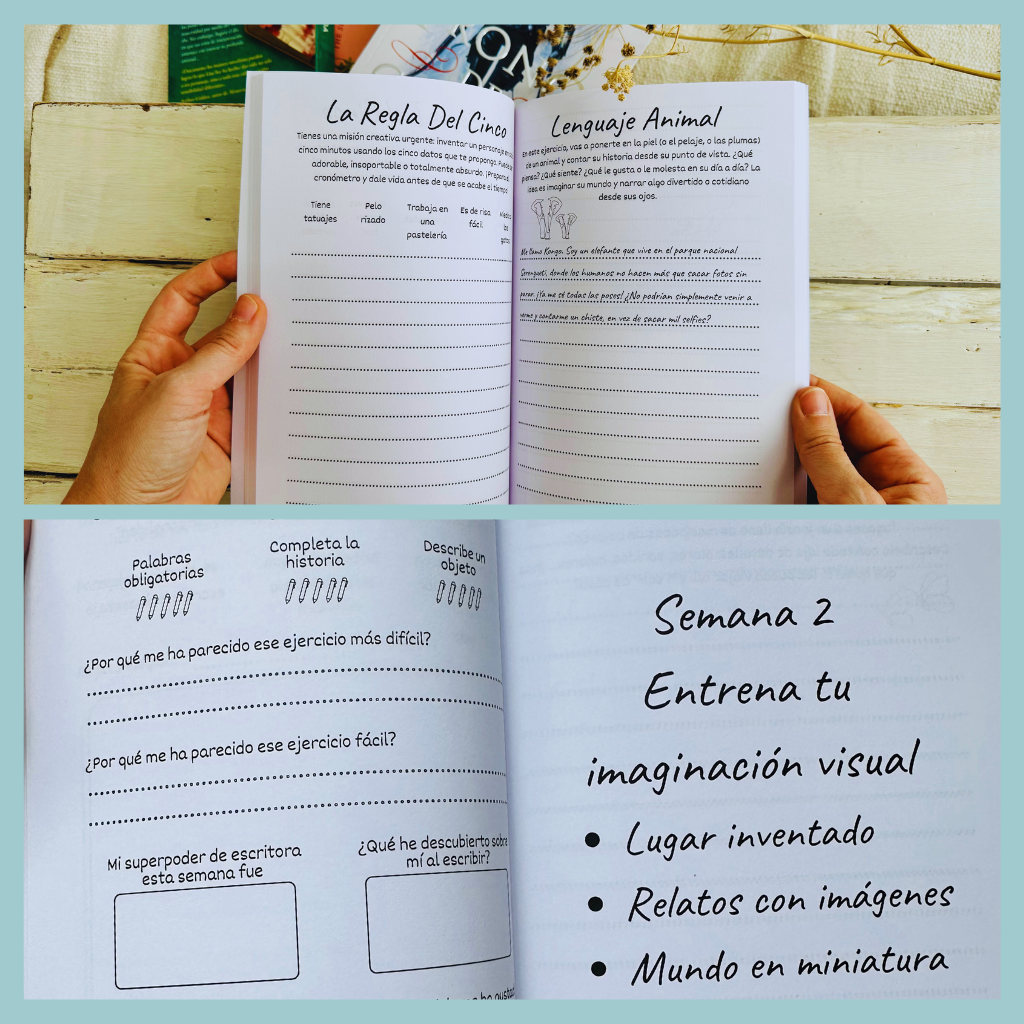 La Regla Del Cinco
Tienes una misión creativa urgente: inventar un personaje en
cinco minutos usando los cinco datos que te propongo. Puede
adorable, insoportable o totalmente absurdo. ¡Prepara el
cronómetro y dale vida antes de que se acabe el tiempo
Tiene
tatuajes
Pelo
rizado
Trabaja en
una
pastelería
Es de risa
fácil
los
Lenguaje Animal
En este ejercicio, vas a ponerte en la piel (o el pelaje, o las plumas)
de un animal y contar su historia desde su punto de vista. ¿Qué
piensa? ¿Qué siente? ¿Qué le gusta o le molesta en su día a día? La
idea es imaginar su mundo y narrar algo divertido o cotidiano
desde sus ojos.
Me llamo Kongo. Soy un elefante que vive en el parque nacional
Serengueti, donde los humanos no hacen más que sacar fotos sin
parar. ¡Ya me sé todas las poses! ¿No podrían simplemente venir a
verme y contarme un chiste, en vez de sacar mil selfies?
Palabras
obligatorias
Completa la
historia
Describe un
objeto
¿Por qué me ha parecido ese ejercicio más difícil?
¿Por qué me ha parecido ese ejercicio fácil?
Mi superpoder de escritora
esta semana fue
¿Qué he descubierto sobre
mí al escribir?
Semana 2
Entrena tu
imaginación visual
• Lugar inventado
• Relatos con imágenes
• Mundo en miniatura